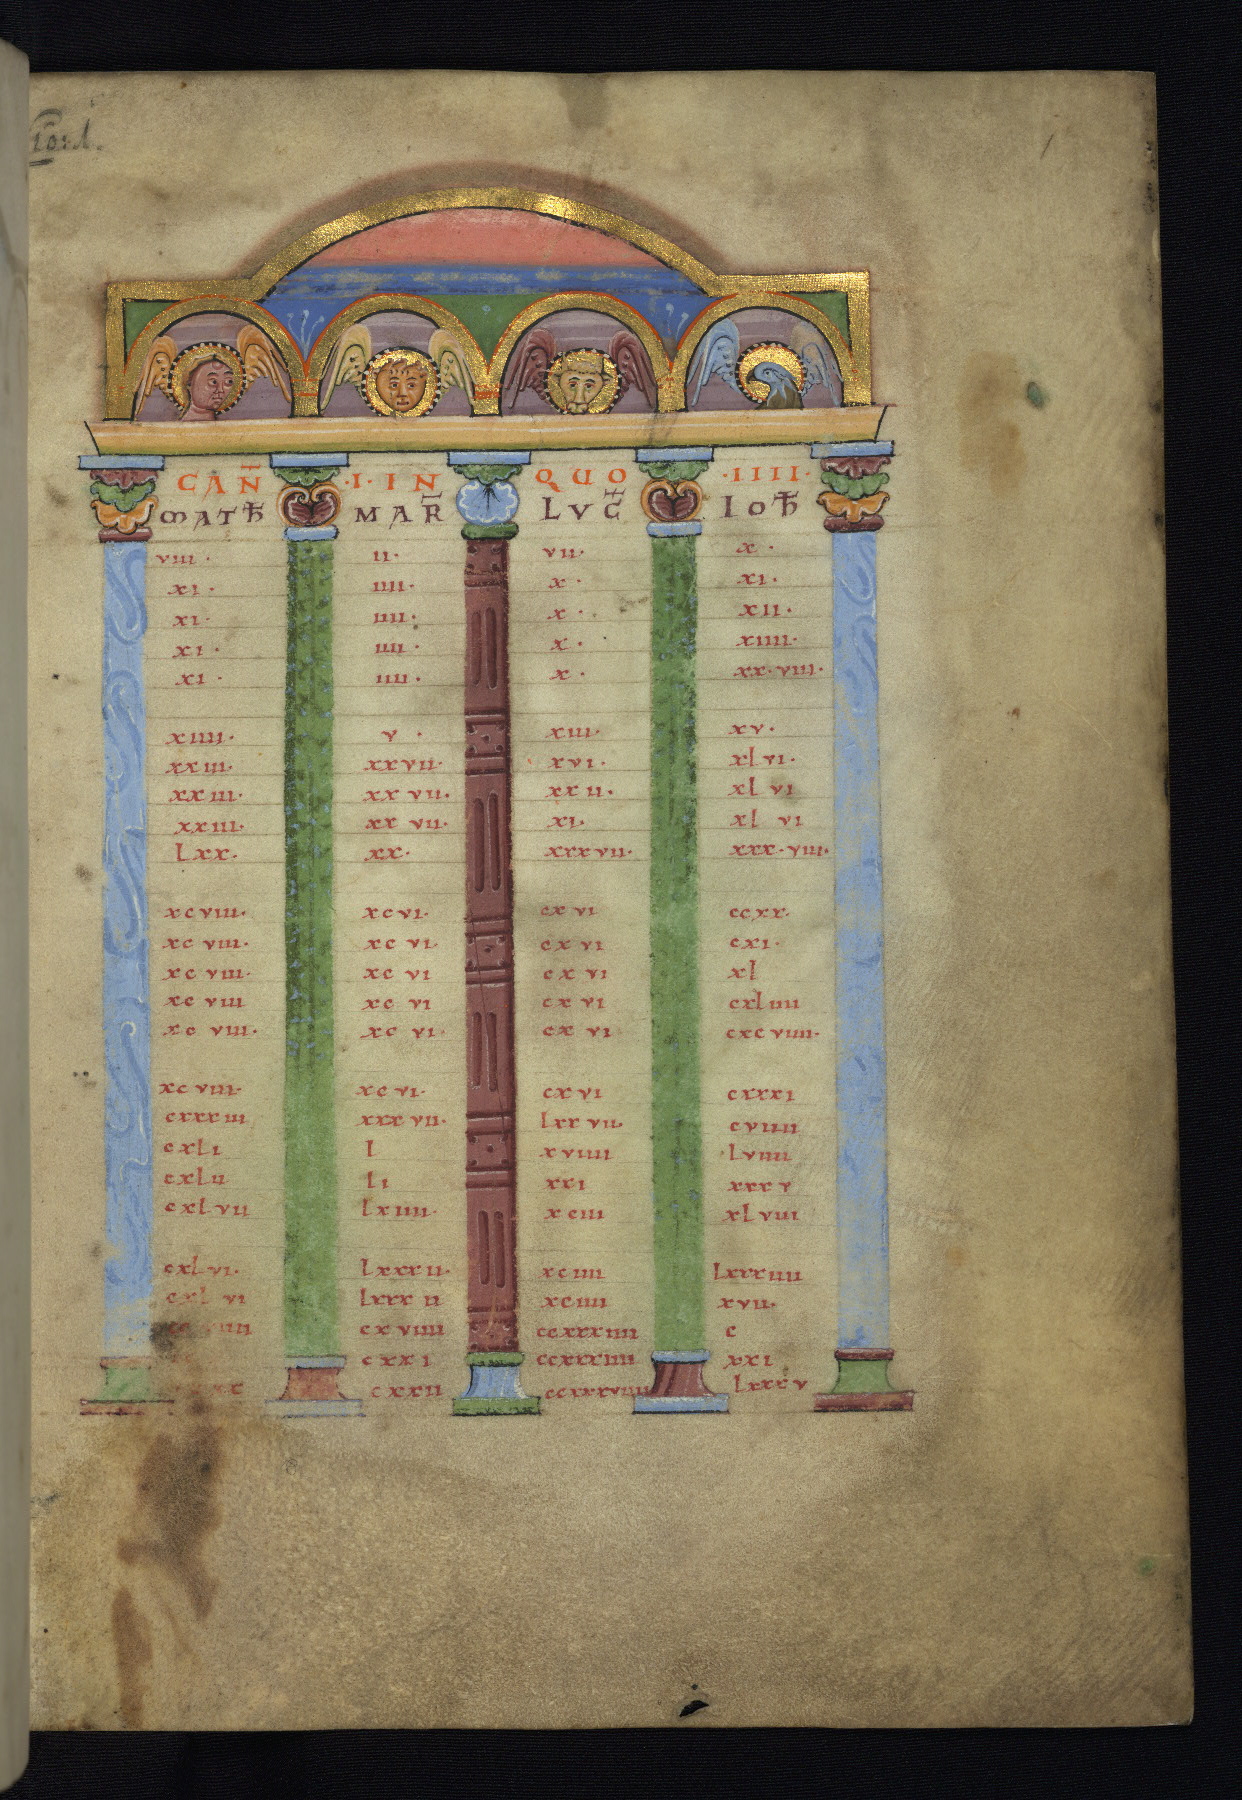 CAN̄ ·I· IN QUO ·IIII·
MATH MAR LVC IOH
viii· ii· vii· x·
xi· iiii· x· xi·
xi· iiii· x· xii·
xi· iiii· x· xiiii·
xi· iiii· x· xx·viii·
xiiii· v· xiii· xv·
xxiii· xxvii· xvi· xlvi·
xxiii· xxvii· xxii· xlvi
xxiii· xxvii· xi· xlvi
lxx· xx· xxxvii· xxx·viii·
xcviii· xcvi· cxvi ccxx·
xcviii· xcvi· cxvi cxi·
xcviii· xcvi cxvi xl
xcviii xcvi cxvi cxliiii
xcviii· xcvi· cxvi cxcviiii·
xcviii· xcvi· cxvi cxxxi
cxxxiii xxxvii· lxxvii· cviiii
cxli l xviiii lviiii
cxlii li xxi xxxv
cxlvii lxiiii· xciii xlviii
cxlvi· lxxxii· xciiii lxxxiiii
cxlvi lxxxii xciiii xvii·
cxviiii ccxxxiiii c
cxxi ccxxxiiii xxi
cxxii ccxxxviiii lxxxv